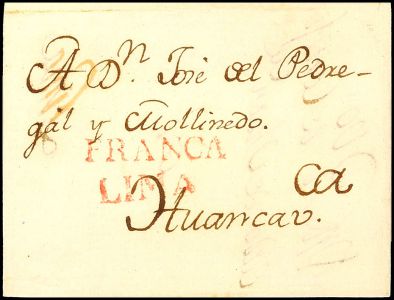 A Dn. José del Pedre-
gal y Mollinedo.
FRANCA
LIMA
ca
Huancav.